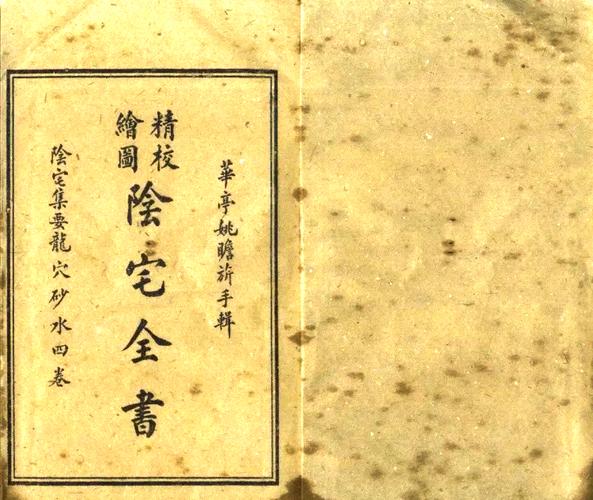 華亭姚瞻旂手輯
精校
繪圖
陰宅全書
陰宅集要龍穴砂水四卷